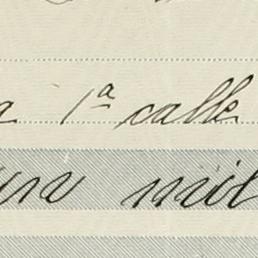 a 1ª calle
un mil